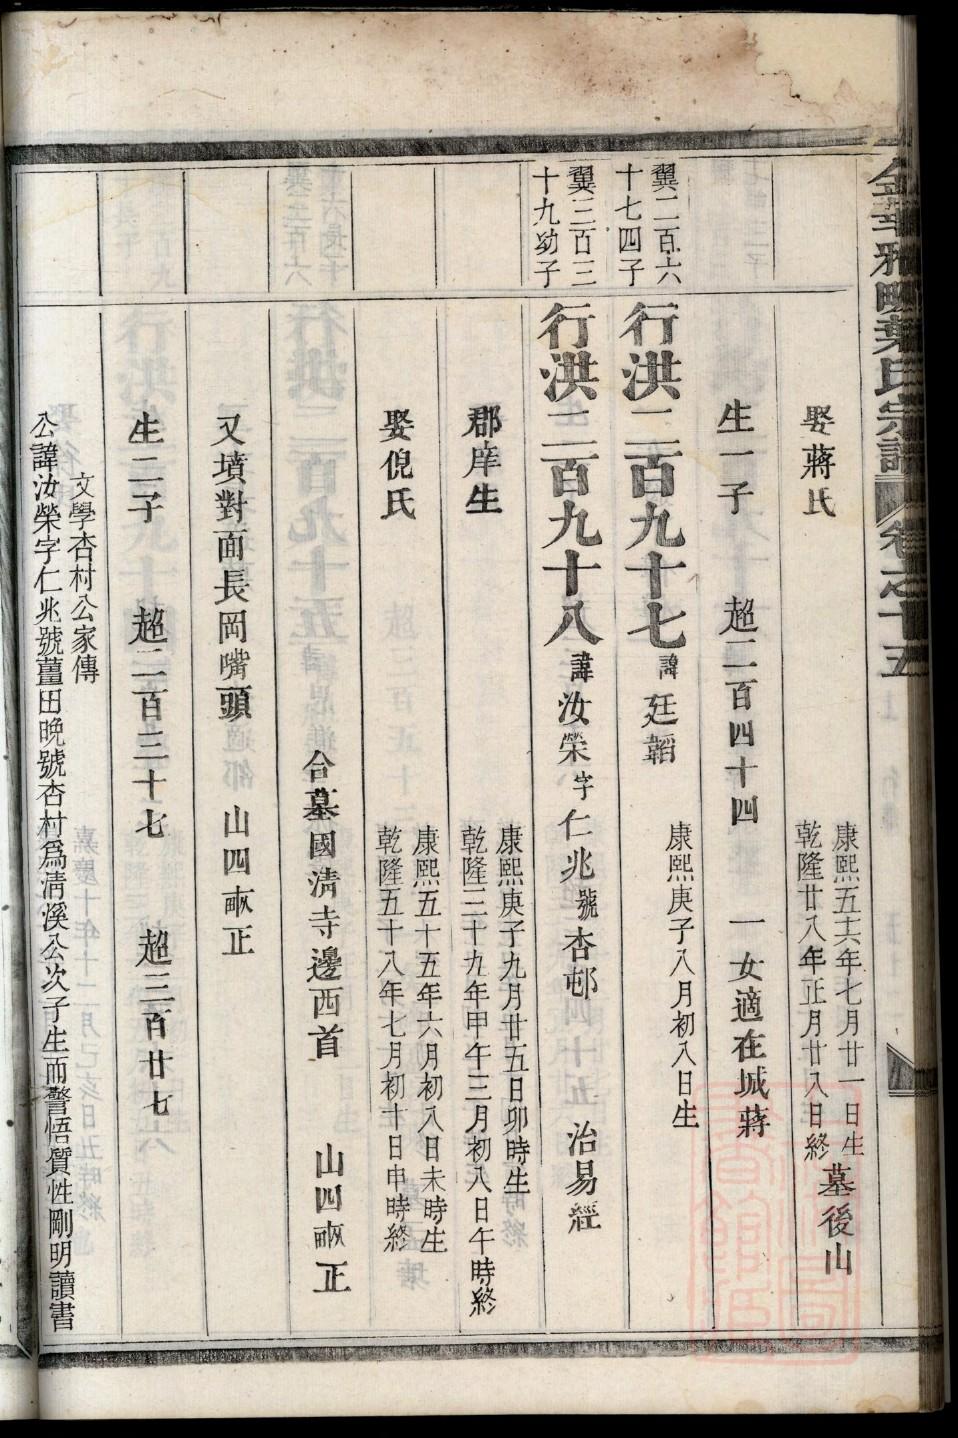 金華雅畈葉氏宗譜 卷之十五
娶蔣氏 康熙五十六年七月廿一日生
乾隆廿八年正月廿八日終 墓後山
生一子 超二百四十四 一女適在城蔣
翼二百六
十七四子
行洪二百九十七 諱廷韜 康熙庚子八月初八日生
翼三百三
十九幼子
行洪二百九十八 諱汝榮字仁兆號杏邨 治易經
郡庠生 康熙庚子九月廿五日卯時生
乾隆三十九年甲午三月初八日午時終
娶倪氏 康熙五十五年六月初八日未時生
乾隆五十八年七月初十日申時終
合墓國清寺邊西首 山四畝正
又墳對面長岡嘴頭 山四畝正
生二子 超二百三十七 超三百廿七
文學杏村公家傳
公諱汝榮字仁兆號薑田晚號杏村爲清溪公次子生而警悟質性剛明讀書